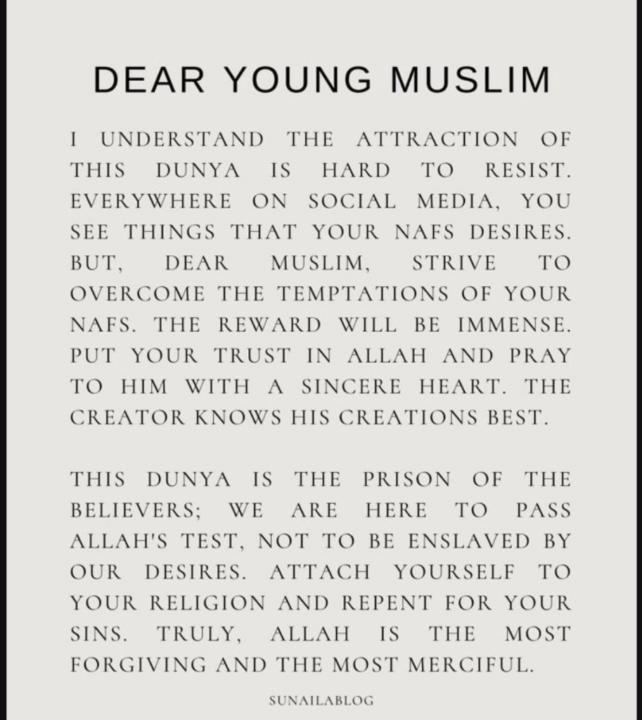 DEAR YOUNG MUSLIM
I UNDERSTAND THE ATTRACTION OF
THIS DUNYA IS HARD TO RESIST.
EVERYWHERE ON SOCIAL MEDIA, YOU
SEE THINGS THAT YOUR NAFS DESIRES.
BUT, DEAR MUSLIM, STRIVE TO
OVERCOME THE TEMPTATIONS OF YOUR
NAFS. THE REWARD WILL BE IMMENSE.
PUT YOUR TRUST IN ALLAH AND PRAY
TO HIM WITH A SINCERE HEART. THE
CREATOR KNOWS HIS CREATIONS BEST.
THIS DUNYA IS THE PRISON OF THE
BELIEVERS; WE ARE HERE TO PASS
ALLAH'S TEST, NOT TO BE ENSLAVED BY
OUR DESIRES. ATTACH YOURSELF TO
YOUR RELIGION AND REPENT FOR YOUR
SINS. TRULY, ALLAH IS THE MOST
FORGIVING AND THE MOST MERCIFUL.
SUNAILABLOG